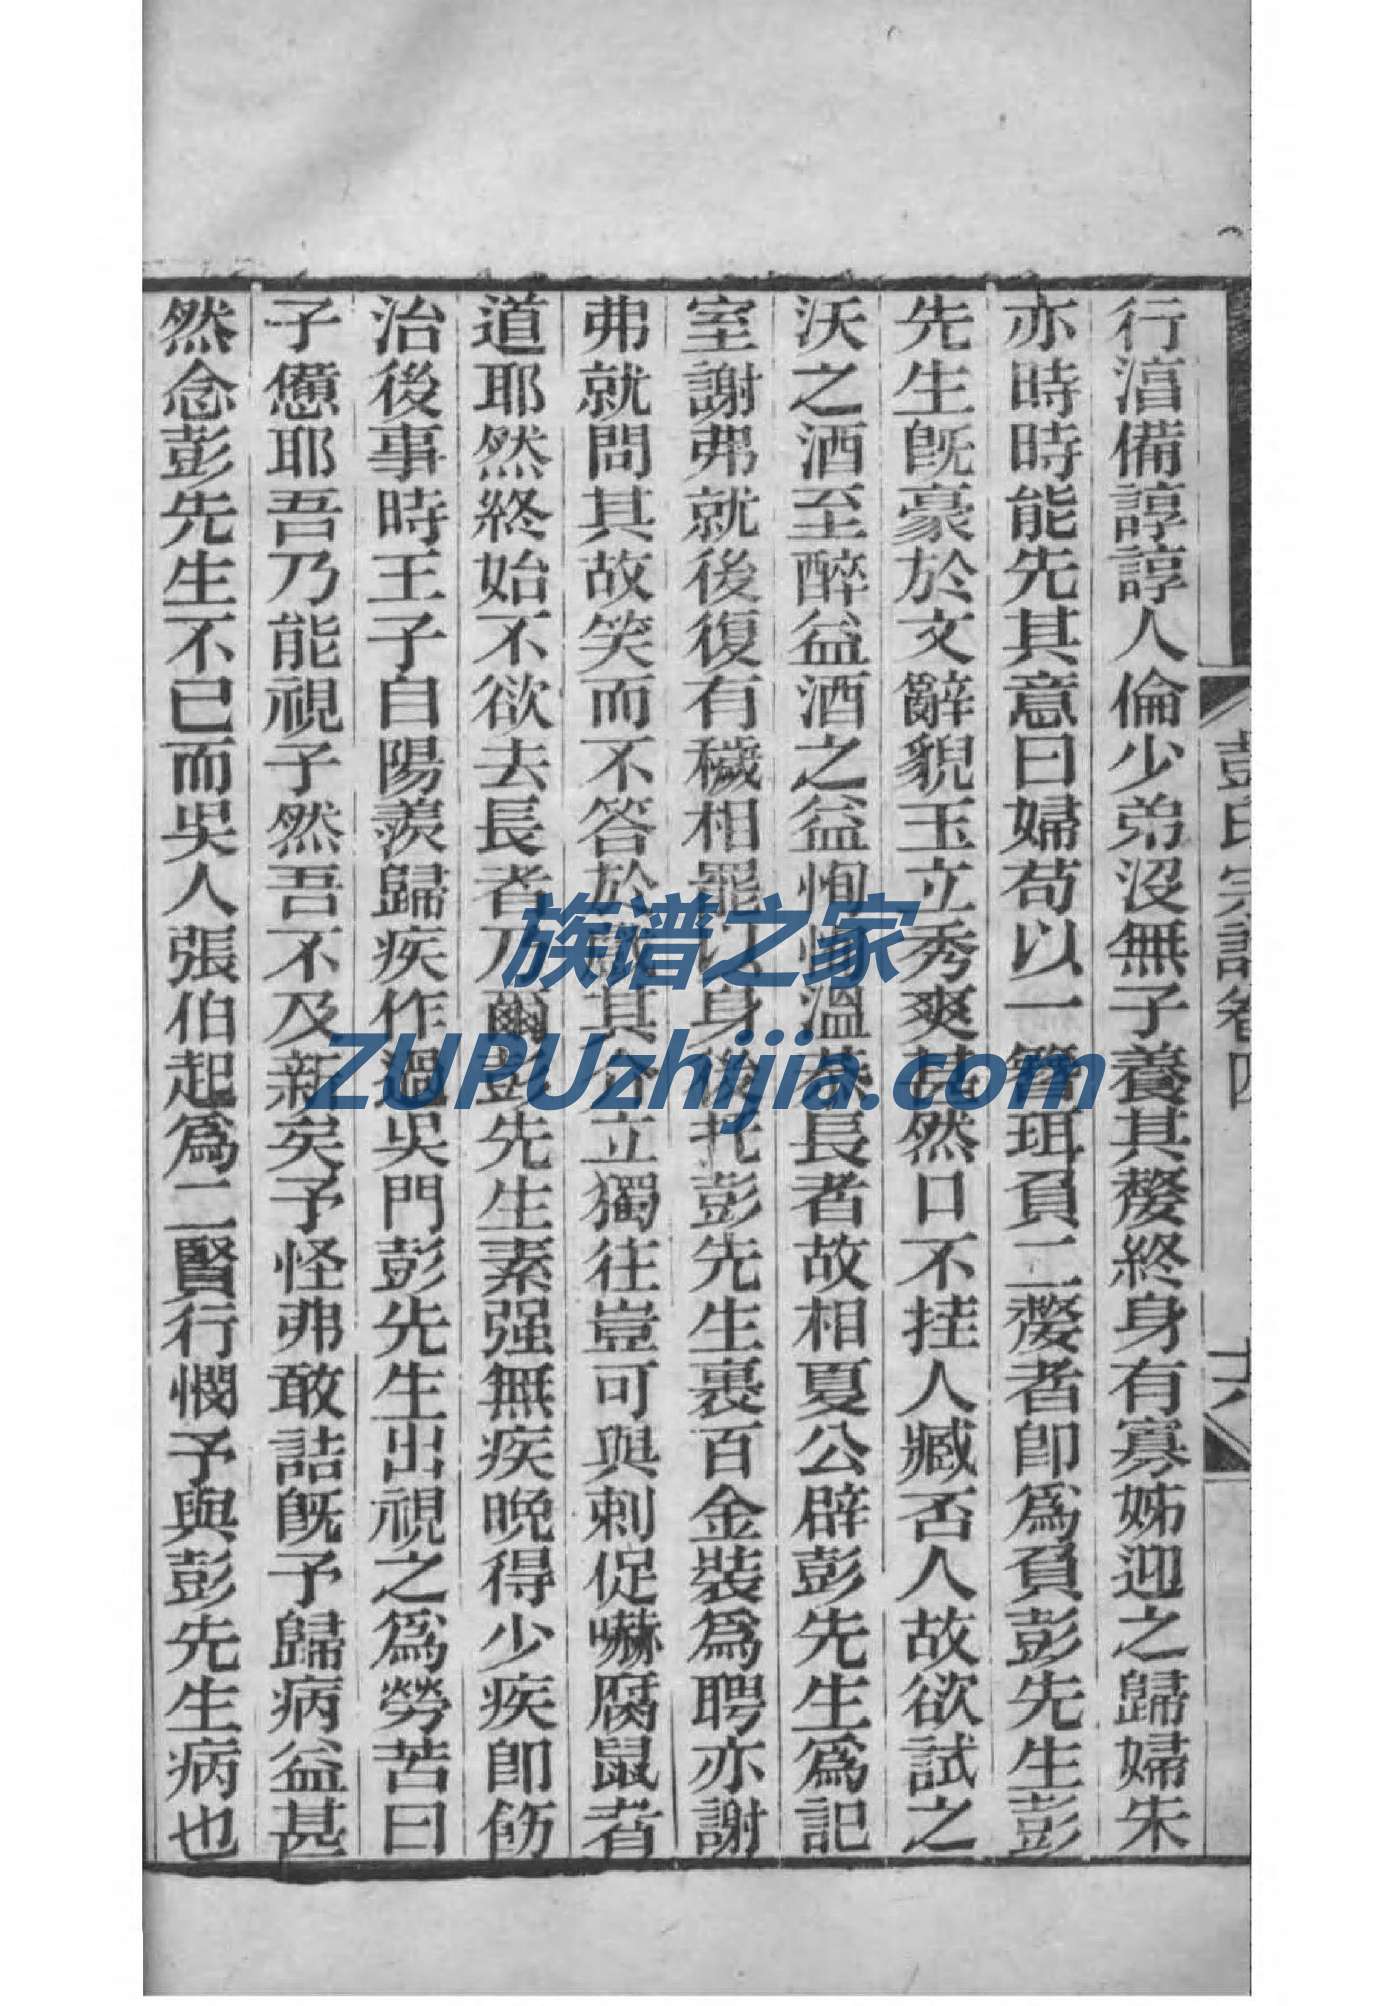 彭氏宗譜卷四
十六
行湻備諄諄人倫少弟沒無子養其嫠終身有寡姊迎之歸婦朱
亦時時能先其意曰婦苟以一簪珥負二嫠者卽爲負彭先生彭
先生旣豪於文辭貌玉立秀爽喆然口不挂人臧否人故欲試之
沃之酒至醉益酒之益恂恂溫恭長者故相夏公辟彭先生爲記
室謝弗就後復有穢相罷以身後托彭先生裹百金裝爲聘亦謝
弗就問其故笑而不答於戲其介立獨往豈可與刺促嚇腐鼠者
道耶然終始不欲去長者乃爾彭先生素强無疾晚得少疾卽飭
治後事時王子自陽羨歸疾作過吳門彭先生出視之爲勞苦曰
子憊耶吾乃能視子然吾不及新矣予怪弗敢詰旣予歸病益甚
然念彭先生不已而吳人張伯起爲二賢行憫予與彭先生病也
族谱之家
ZUPUzhijia.com